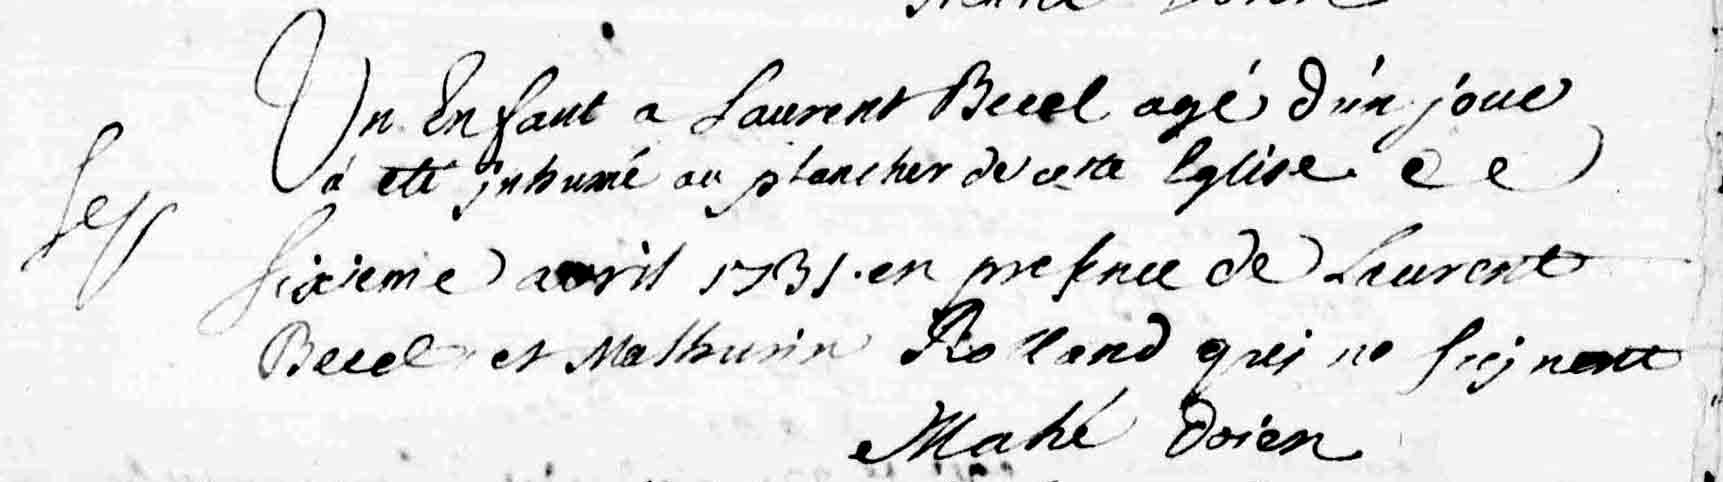 Un Enfant a Laurent Becel agé d'un jour
Sep
a eté inhumé au plancher de cette Eglise ce
sixieme avril 1731. en presence de Laurent
Becel et Mathurin Rolland qui ne signent
Mahé doien